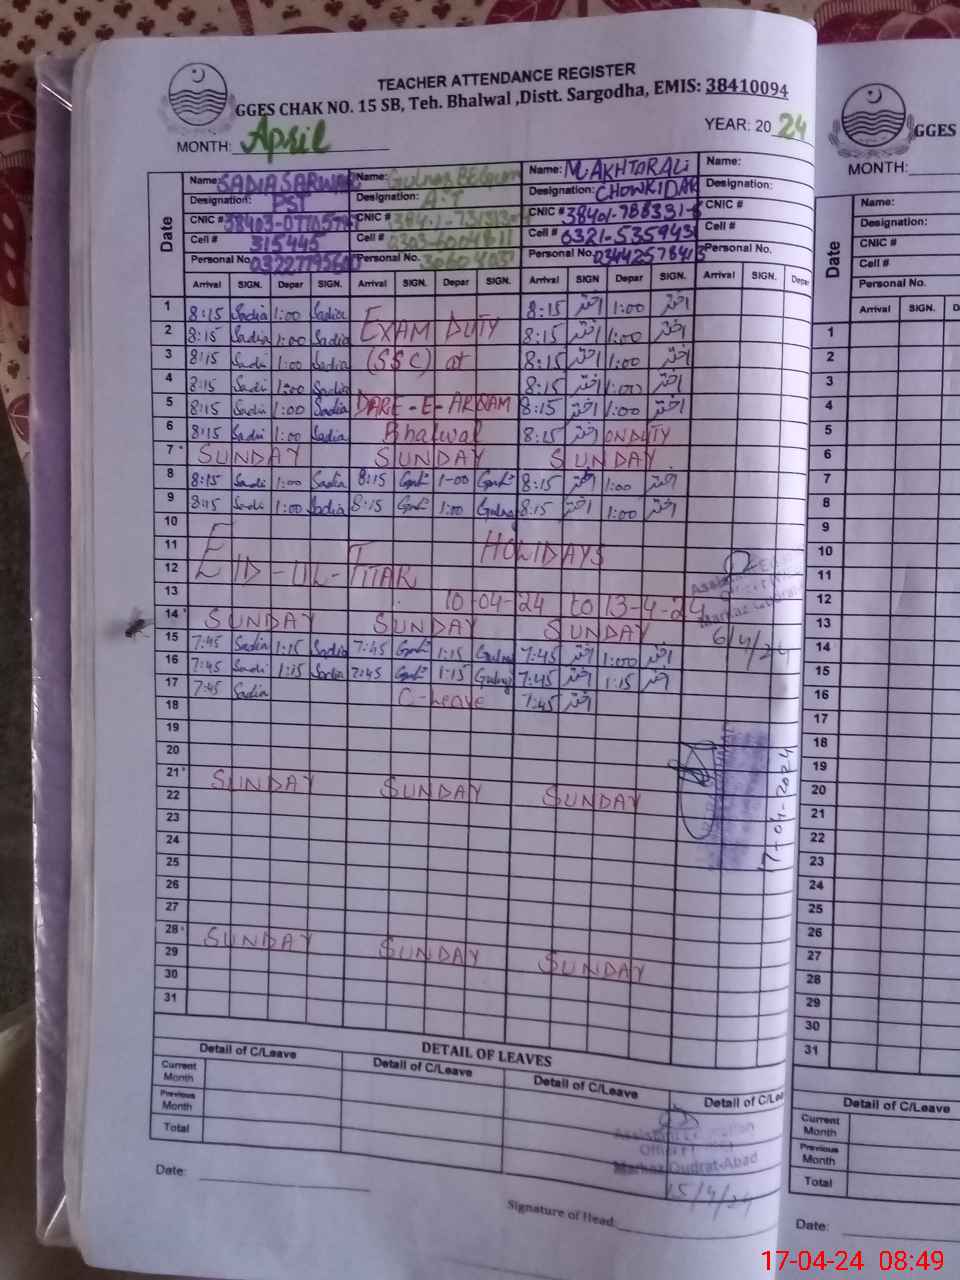 TEACHER ATTENDANCE REGISTER
GGES CHAK NO. 15 SB, Teh. Bhalwal ,Distt. Sargodha, EMIS: 38410094
MONTH: April YEAR: 2024
Name: SADIA SARWAR Name: Gulnaz BEgum Name: M.AKHTAR ALi Name:
Designation: PST Designation: A.T Designation: CHOWKIDAR Designation:
CNIC # CNIC # CNIC # CNIC #
Cell # 315445 Cell # Cell # Cell #
Personal No. Personal No. Personal No. Personal No.
Date Arrival SIGN. Depar SIGN. Arrival SIGN. Depar SIGN. Arrival SIGN. Depar SIGN. Arrival SIGN. Depar
1 8:15 Sadia 1:00 Sadia EXAM DUTY 8:15 اختر 1:00 اختر
2 8:15 Sadia 1:00 Sadia (SSC) at 8:15 اختر 1:00 اختر
3 8:15 Sadi 1:00 Sadia 8:15 اختر 1:00 اختر
4 8:15 Sadi 1:00 Sadia 8:15 اختر 1:00 اختر
5 8:15 Sadia 1:00 Sadia DARE-E-ARQAM 8:15 اختر 1:00 اختر
6 8:15 Sadia 1:00 Sadia Bhalwal 8:15 اختر ON DUTY
7 SUNDAY SUNDAY SUNDAY
8 8:15 Sadia 1:00 Sadia 8:15 1-00 8:15 اختر 1:00 اختر
9 8:15 Sadi 1:00 Sadia 8:15 1:00 Gulnaz 8:15 اختر 1:00 اختر
10
11 EID-UL-FITAR HOLIDAYS
12
13 10-04-24 to 13-4-24
14 SUNDAY SUNDAY SUNDAY
15 7:45 Sadia 1:15 Sadia 7:45 1:15 Gulnaz 7:45 اختر 1:00 اختر
16 7:45 Sadi 1:15 Sadia 7:45 1:15 Gulnaz 7:45 اختر 1:15 اختر
17 7:45 Sadia C-Leave 7:45 اختر
18
19
20
21 SUNDAY SUNDAY SUNDAY
22
23
24
25
26
27
28 SUNDAY SUNDAY SUNDAY
29
30
31
6/4/24
17-04-2024
DETAIL OF LEAVES
Detail of C/Leave Detail of C/Leave Detail of C/Leave Detail of C/Lea
Current Month
Previous Month
Total
Assistant Education
Markaz Qudrat-Abad
15/4/24
Date:
Signature of Head:
GGES
MONTH:
Name:
Designation:
CNIC #
Cell #
Personal No.
Date Arrival SIGN.
1
2
3
4
5
6
7
8
9
10
11
12
13
14
15
16
17
18
19
20
21
22
23
24
25
26
27
28
29
30
31
Detail of C/Leave
Current Month
Previous Month
Total
Date:
17-04-24 08:49